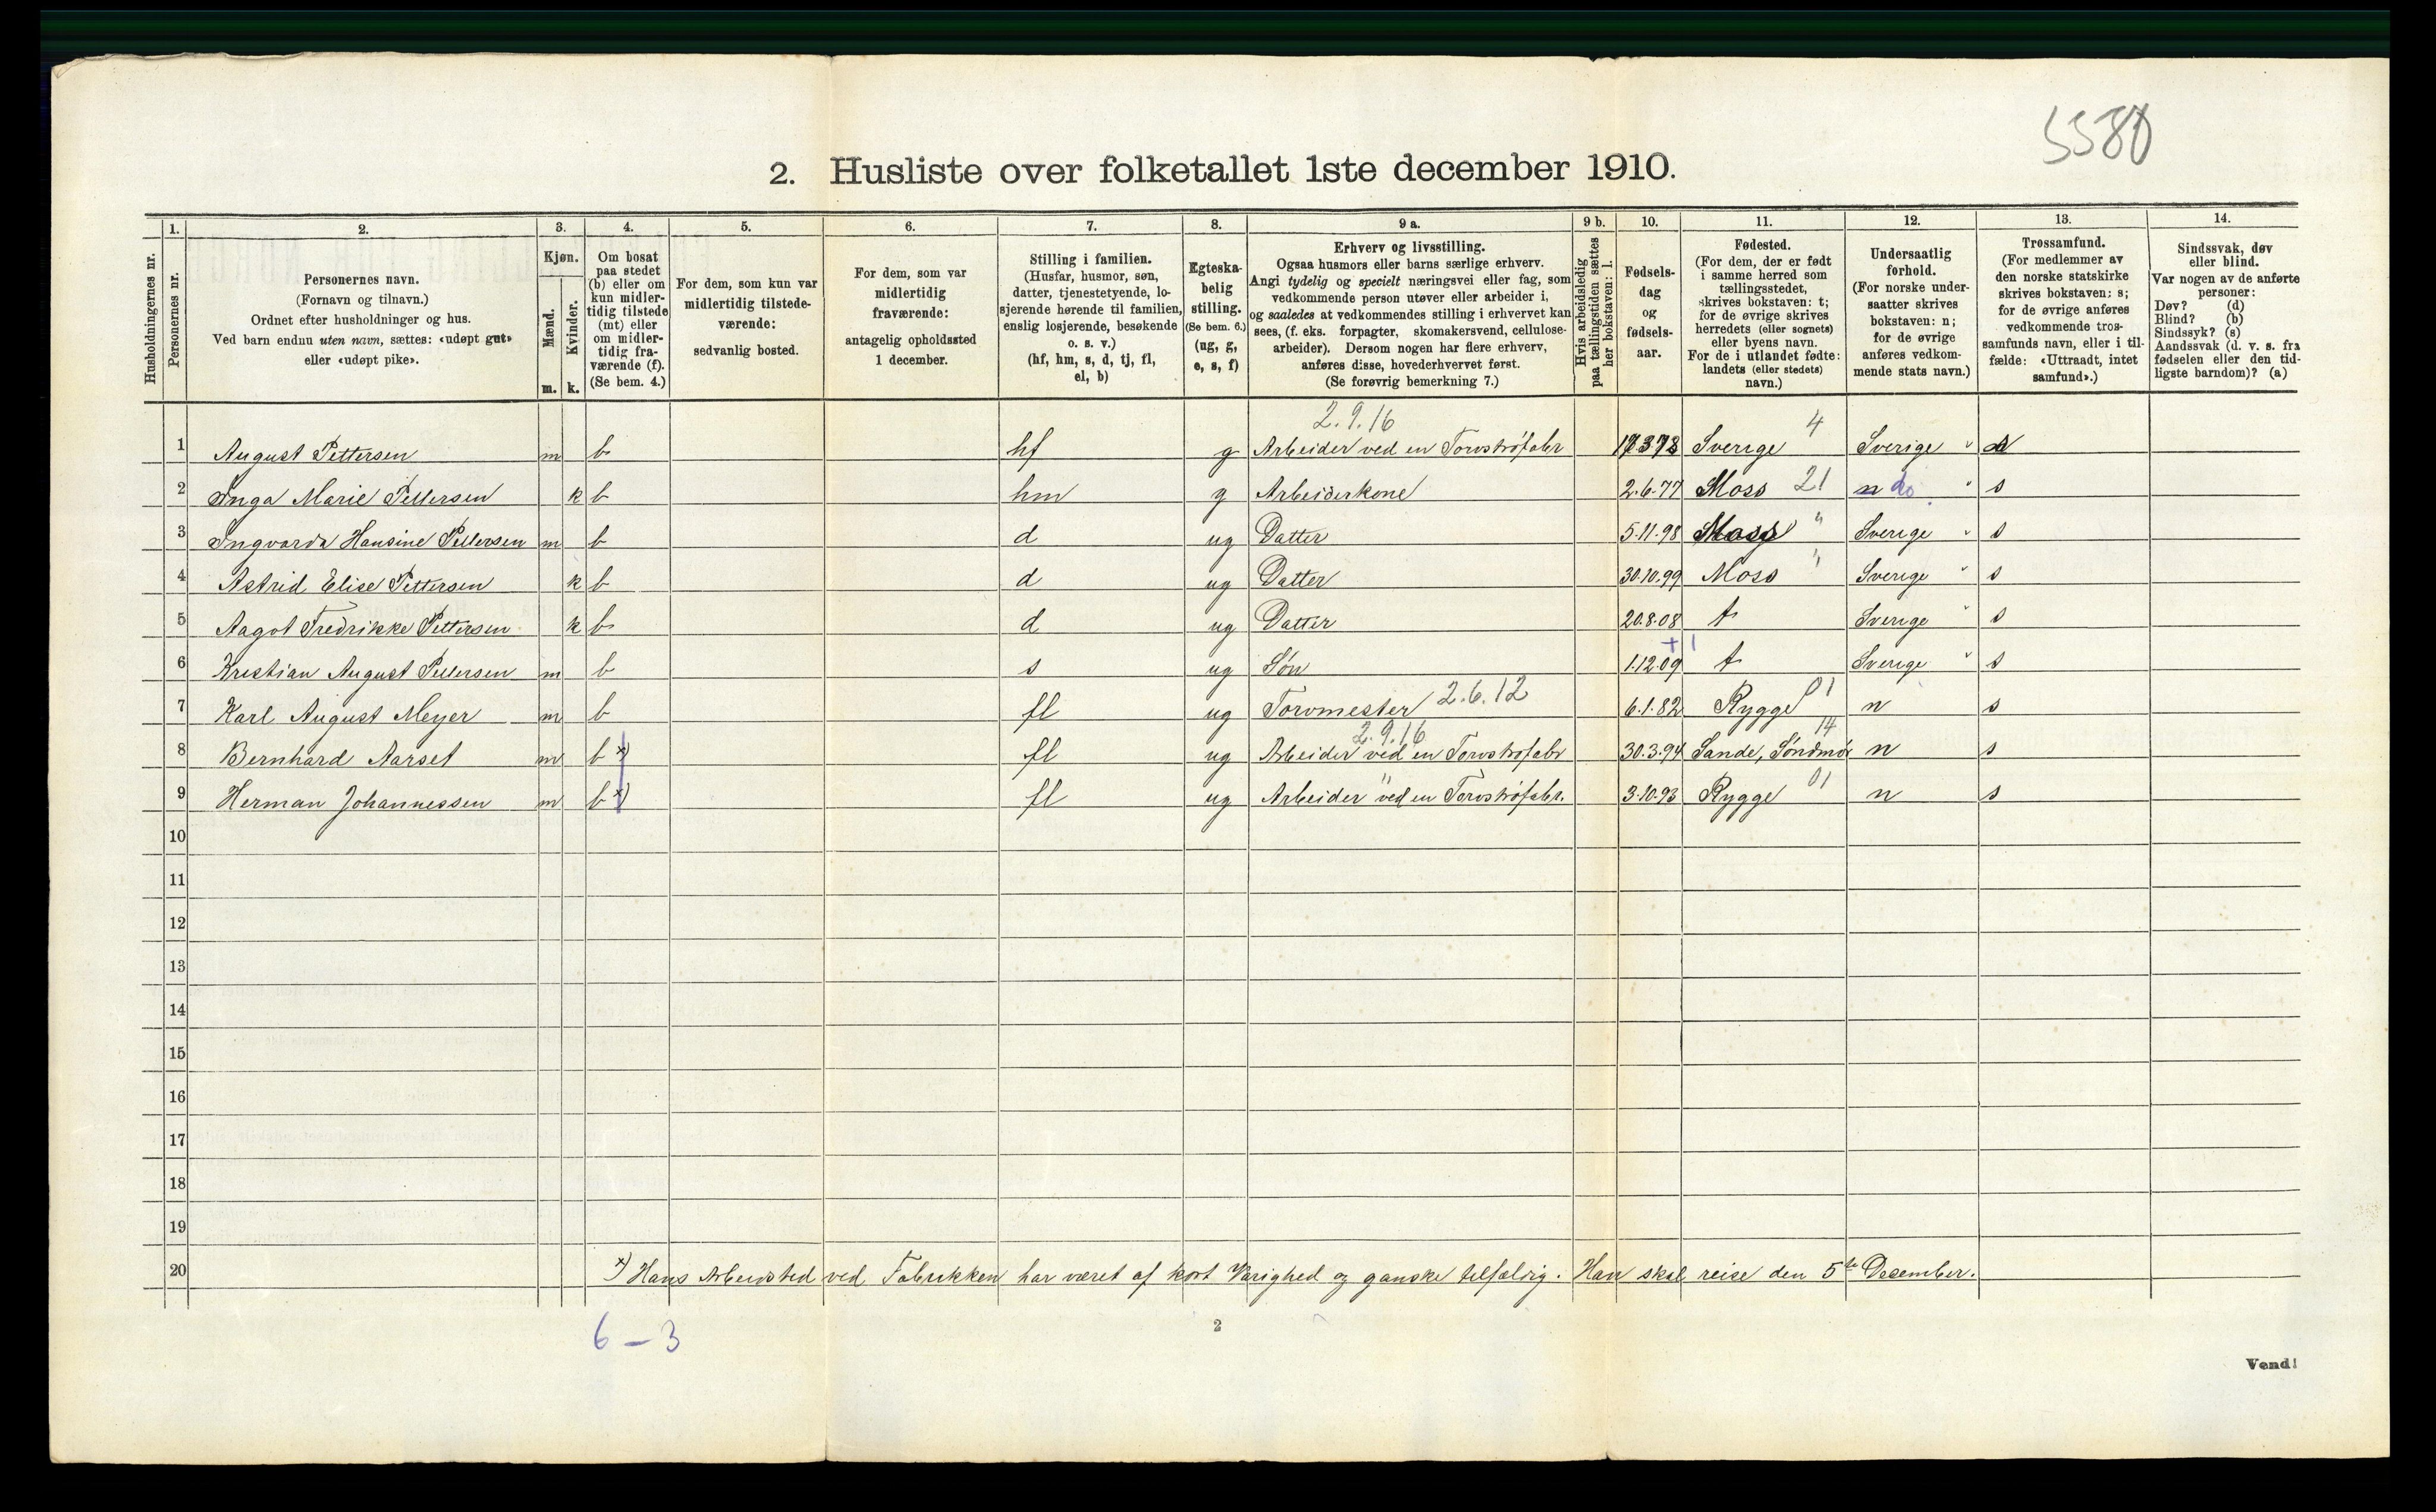 5580
2. Husliste over folketallet 1ste december 1910.
Husholdningernes nr.
1.
Personernes nr.
2.
Personernes navn.
(Fornavn og tilnavn.)
Ordnet efter husholdninger og hus.
Ved barn endnu uten navn, sættes: «udøpt gut»
eller «udøpt pike».
3.
Kjøn.
Mænd.
m.
Kvinder.
k.
4.
Om bosat
paa stedet
(b) eller om
kun midler-
tidig tilstede
(mt) eller
om midler-
tidig fra-
værende (f).
(Se bem. 4.)
5.
For dem, som kun var
midlertidig tilstede-
værende:
sedvanlig bosted.
6.
For dem, som var
midlertidig
fraværende:
antagelig opholdssted
1 december.
7.
Stilling i familien.
(Husfar, husmor, søn,
datter, tjenestetyende, lo-
sjerende hørende til familien,
enslig losjerende, besøkende
o. s. v.)
(hf, hm, s, d, tj, fl,
el, b)
8.
Egteska-
belig
stilling.
(Se bem. 6.)
(ug, g,
e, s, f)
9 a.
Erhverv og livsstilling.
Ogsaa husmors eller barns særlige erhverv.
Angi tydelig og specielt næringsvei eller fag, som
vedkommende person utøver eller arbeider i,
og saaledes at vedkommendes stilling i erhvervet kan
sees, (f. eks. forpagter, skomakersvend, cellulose-
arbeider). Dersom nogen har flere erhverv,
anføres disse, hovederhvervet først.
(Se forøvrig bemerkning 7.)
9 b.
Hvis arbeidsledig
paa tællingstiden sættes
her bokstaven: l.
10.
Fødsels-
dag
og
fødsels-
aar.
11.
Fødested.
(For dem, der er født
i samme herred som
tællingsstedet,
skrives bokstaven: t;
for de øvrige skrives
herredets (eller sognets)
eller byens navn.
For de i utlandet fødte:
landets (eller stedets)
navn.)
12.
Undersaatlig
forhold.
(For norske under-
saatter skrives
bokstaven: n;
for de øvrige
anføres vedkom-
mende stats navn.)
13.
Trossamfund.
(For medlemmer av
den norske statskirke
skrives bokstaven: s;
for de øvrige anføres
vedkommende tros-
samfunds navn, eller i til-
fælde: «Uttraadt, intet
samfund».)
14.
Sindssvak, døv
eller blind.
Var nogen av de anførte
personer:
Døv? (d)
Blind? (b)
Sindssyk? (s)
Aandssvak (d. v. s. fra
fødselen eller den tid-
ligste barndom)? (a)
2.9.16 4
1 August Pettersen m b hf g Arbeider ved en Torvströfabr Sverige Sverige "
2 Inga Marie Pettersen k b hm g Arbeiderkone 2.6.77 Moss 21 n do " s
3 Ingvarda Hansine Pettersen m b d ug Datter 5.11.98 Moss " Sverige " s
4 Astrid Elise Pettersen k b d ug Datter 30.10.99 Moss " Sverige " s
5 Aagot Fredrikke Pettersen k b d ug Datter 20.8.08 t Sverige " s
+ 1
6 Kristian August Pettersen m b s ug Søn 1.12.09 t Sverige " s
7 Karl August Meyer m b fl ug Torvmester 2.6.12 6.1.82 Rygge 01 n s
2.9.16 14
8 Bernhard Aarset m b x) fl ug Arbeider ved en Torvströfabr 30.3.94 Sande, Söndmör n s
9 Herman Johannessen m b x) fl ug Arbeider " ved en Torvströfabr. 3.10.93 Rygge 01 n s
10
11
12
13
14
15
16
17
18
19
20 x) Hans Arbeidsted ved Fabrikken har været af kort Varighed og ganske tilfældig. Han skal reise den 5te Desember.
6 – 3
2
Vend!